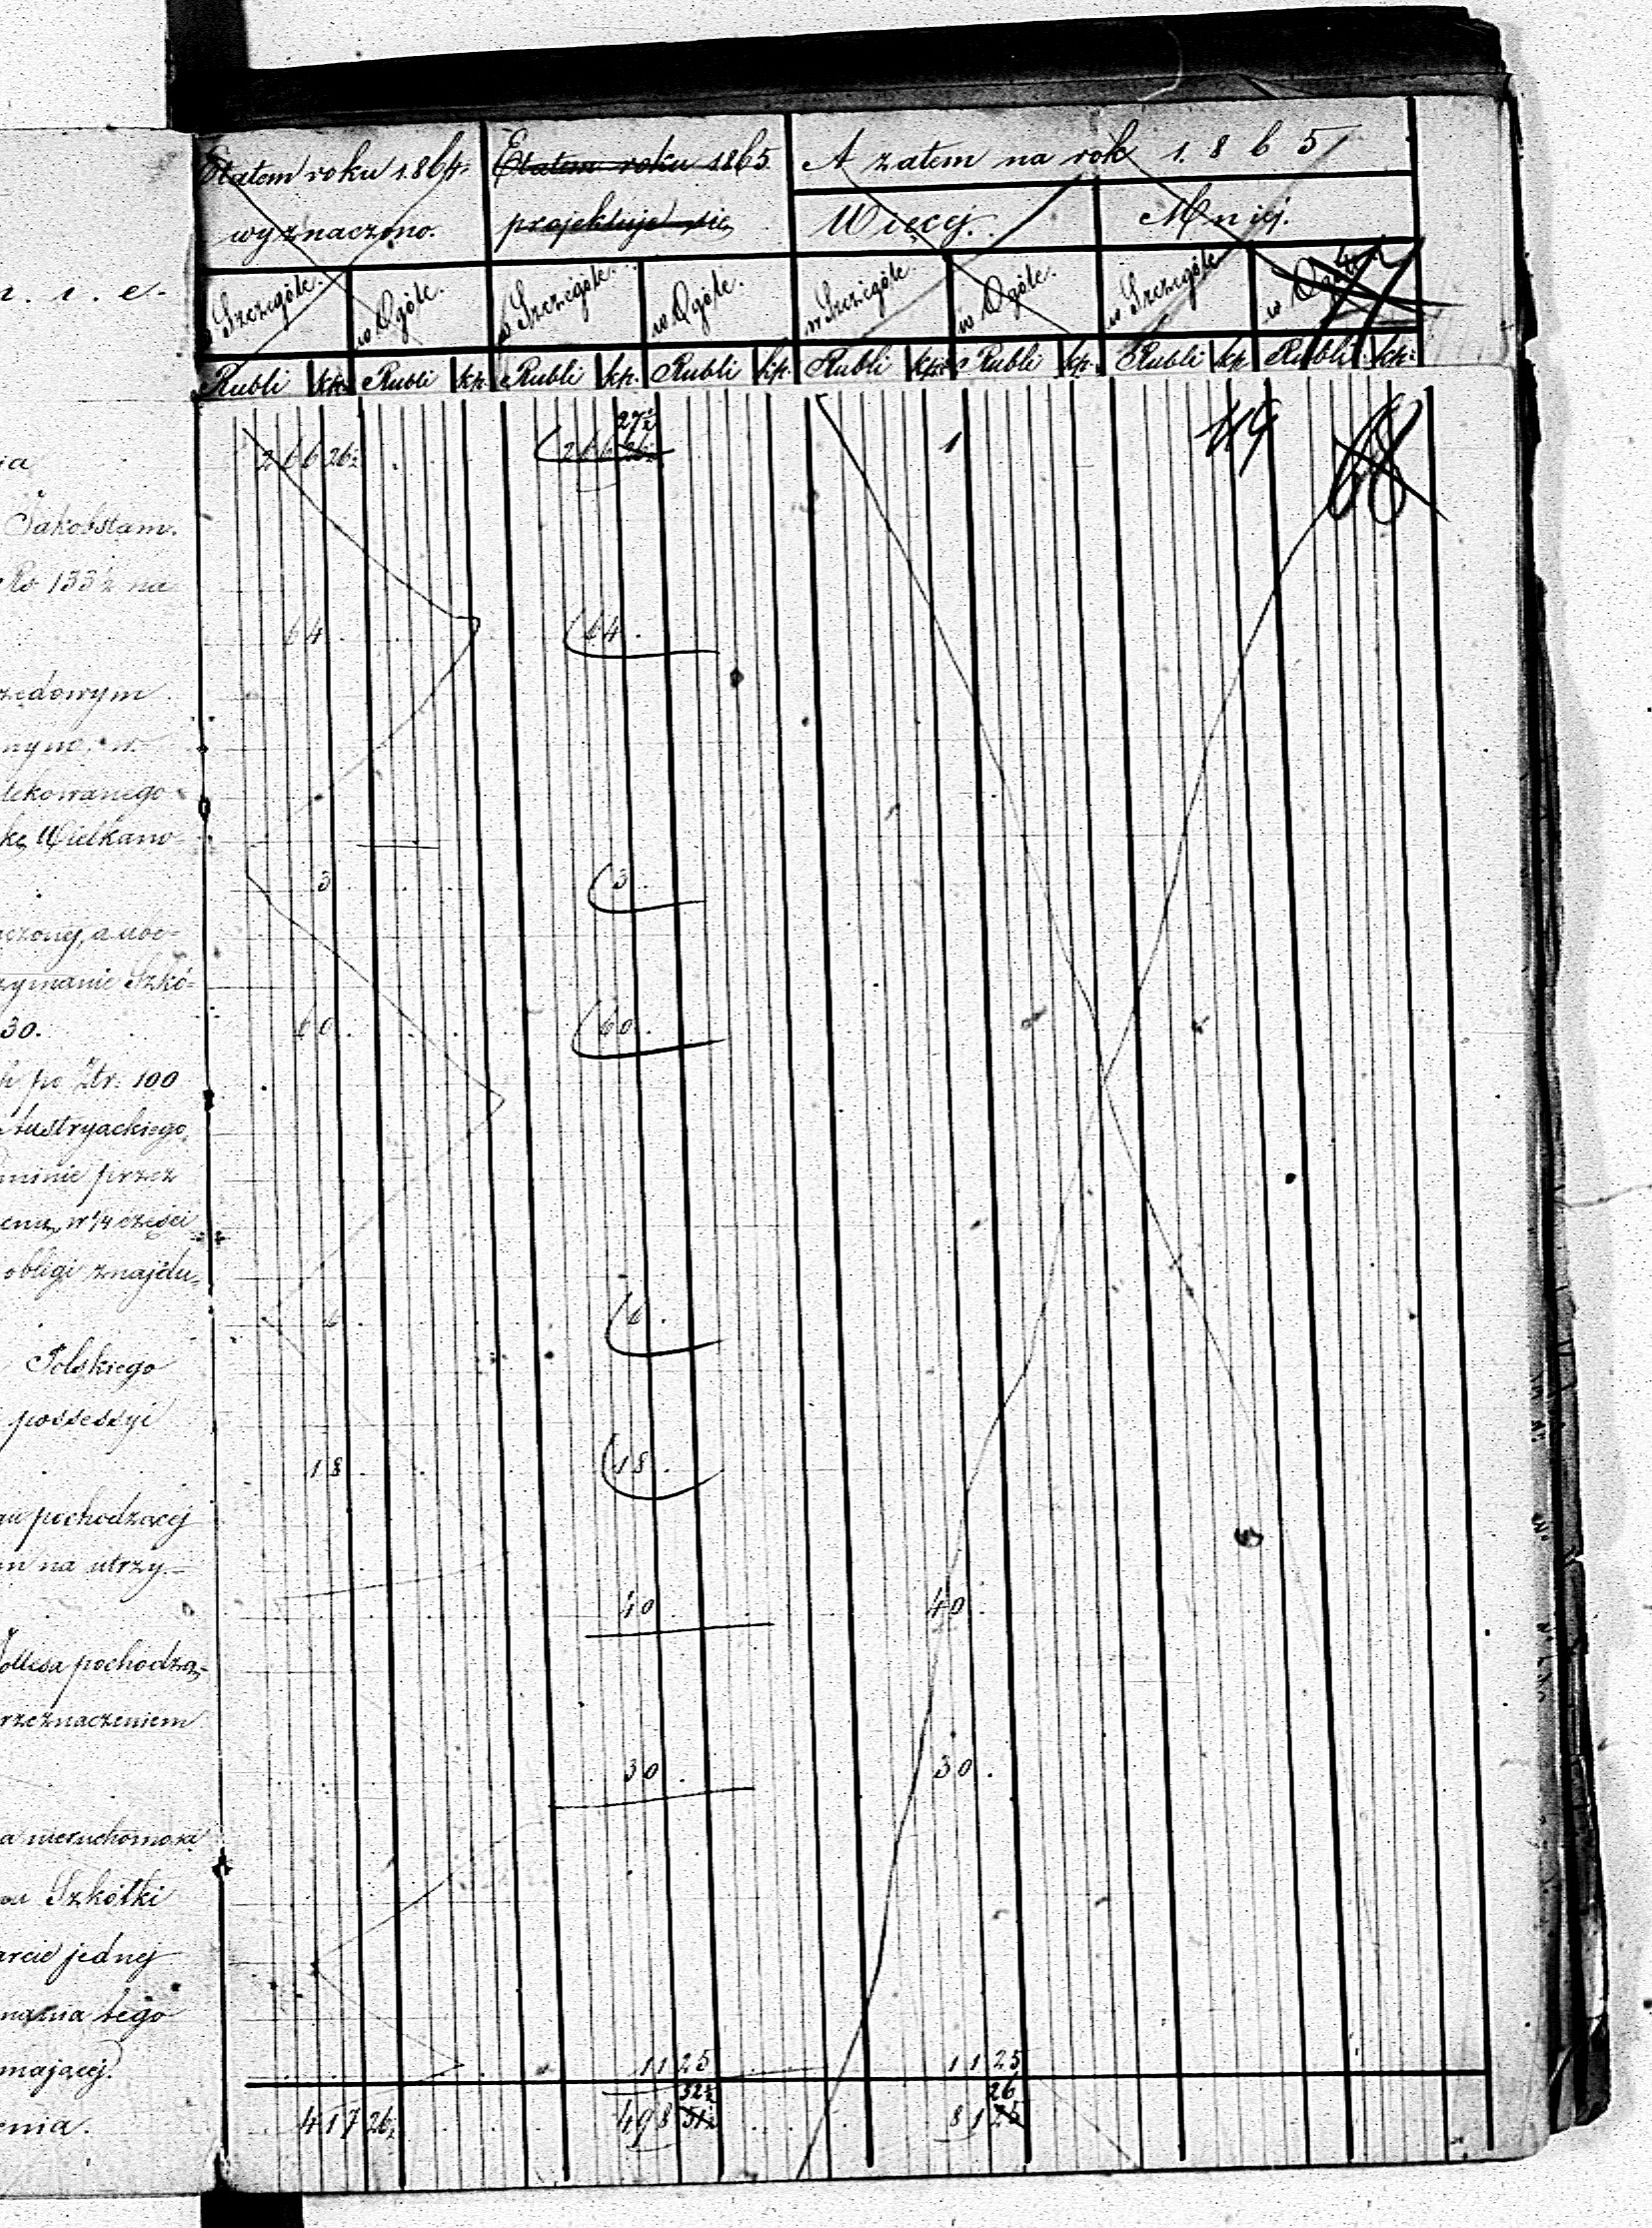 Etatem roku 1864 Etatem roku 1865 A zatem na rok 1865
wyznaczono. projektuje się Więcej. Mniej.
w Szczególe. w Ogóle. w Szczególe. w Ogóle. w Szczególe. w Ogóle. w Szczególe w Ogóle
Rubli kp. Rubli kp. Rubli kp. Rubli kp. Rubli kp. Rubli kp. Rubli kp. Rubli kp.
n. i. e.
27½
266 26½ 266 26½ 1 49 68
Jakobstam.
Ro 133½ na
64 64
nym w
lekowanego
kę Wielkano
3 3
czonej, a uoe-
zymanie Szkó-
30. 60 60
po Złr. 100
Austryackiego,
minie przez
w ¼ części
obligi znajdu-
6 6
Polskiego
possessyi
18 18
pochodzącej
na utrzy-
40 40
pochodzą-
rzeznaczeniem
30 30
a nieruchomości
Szkółki
arcie jednej
mania tego
mającej. 11 25 11 25
32½ 26
enia. 417 26½ 498 51½ 81 25